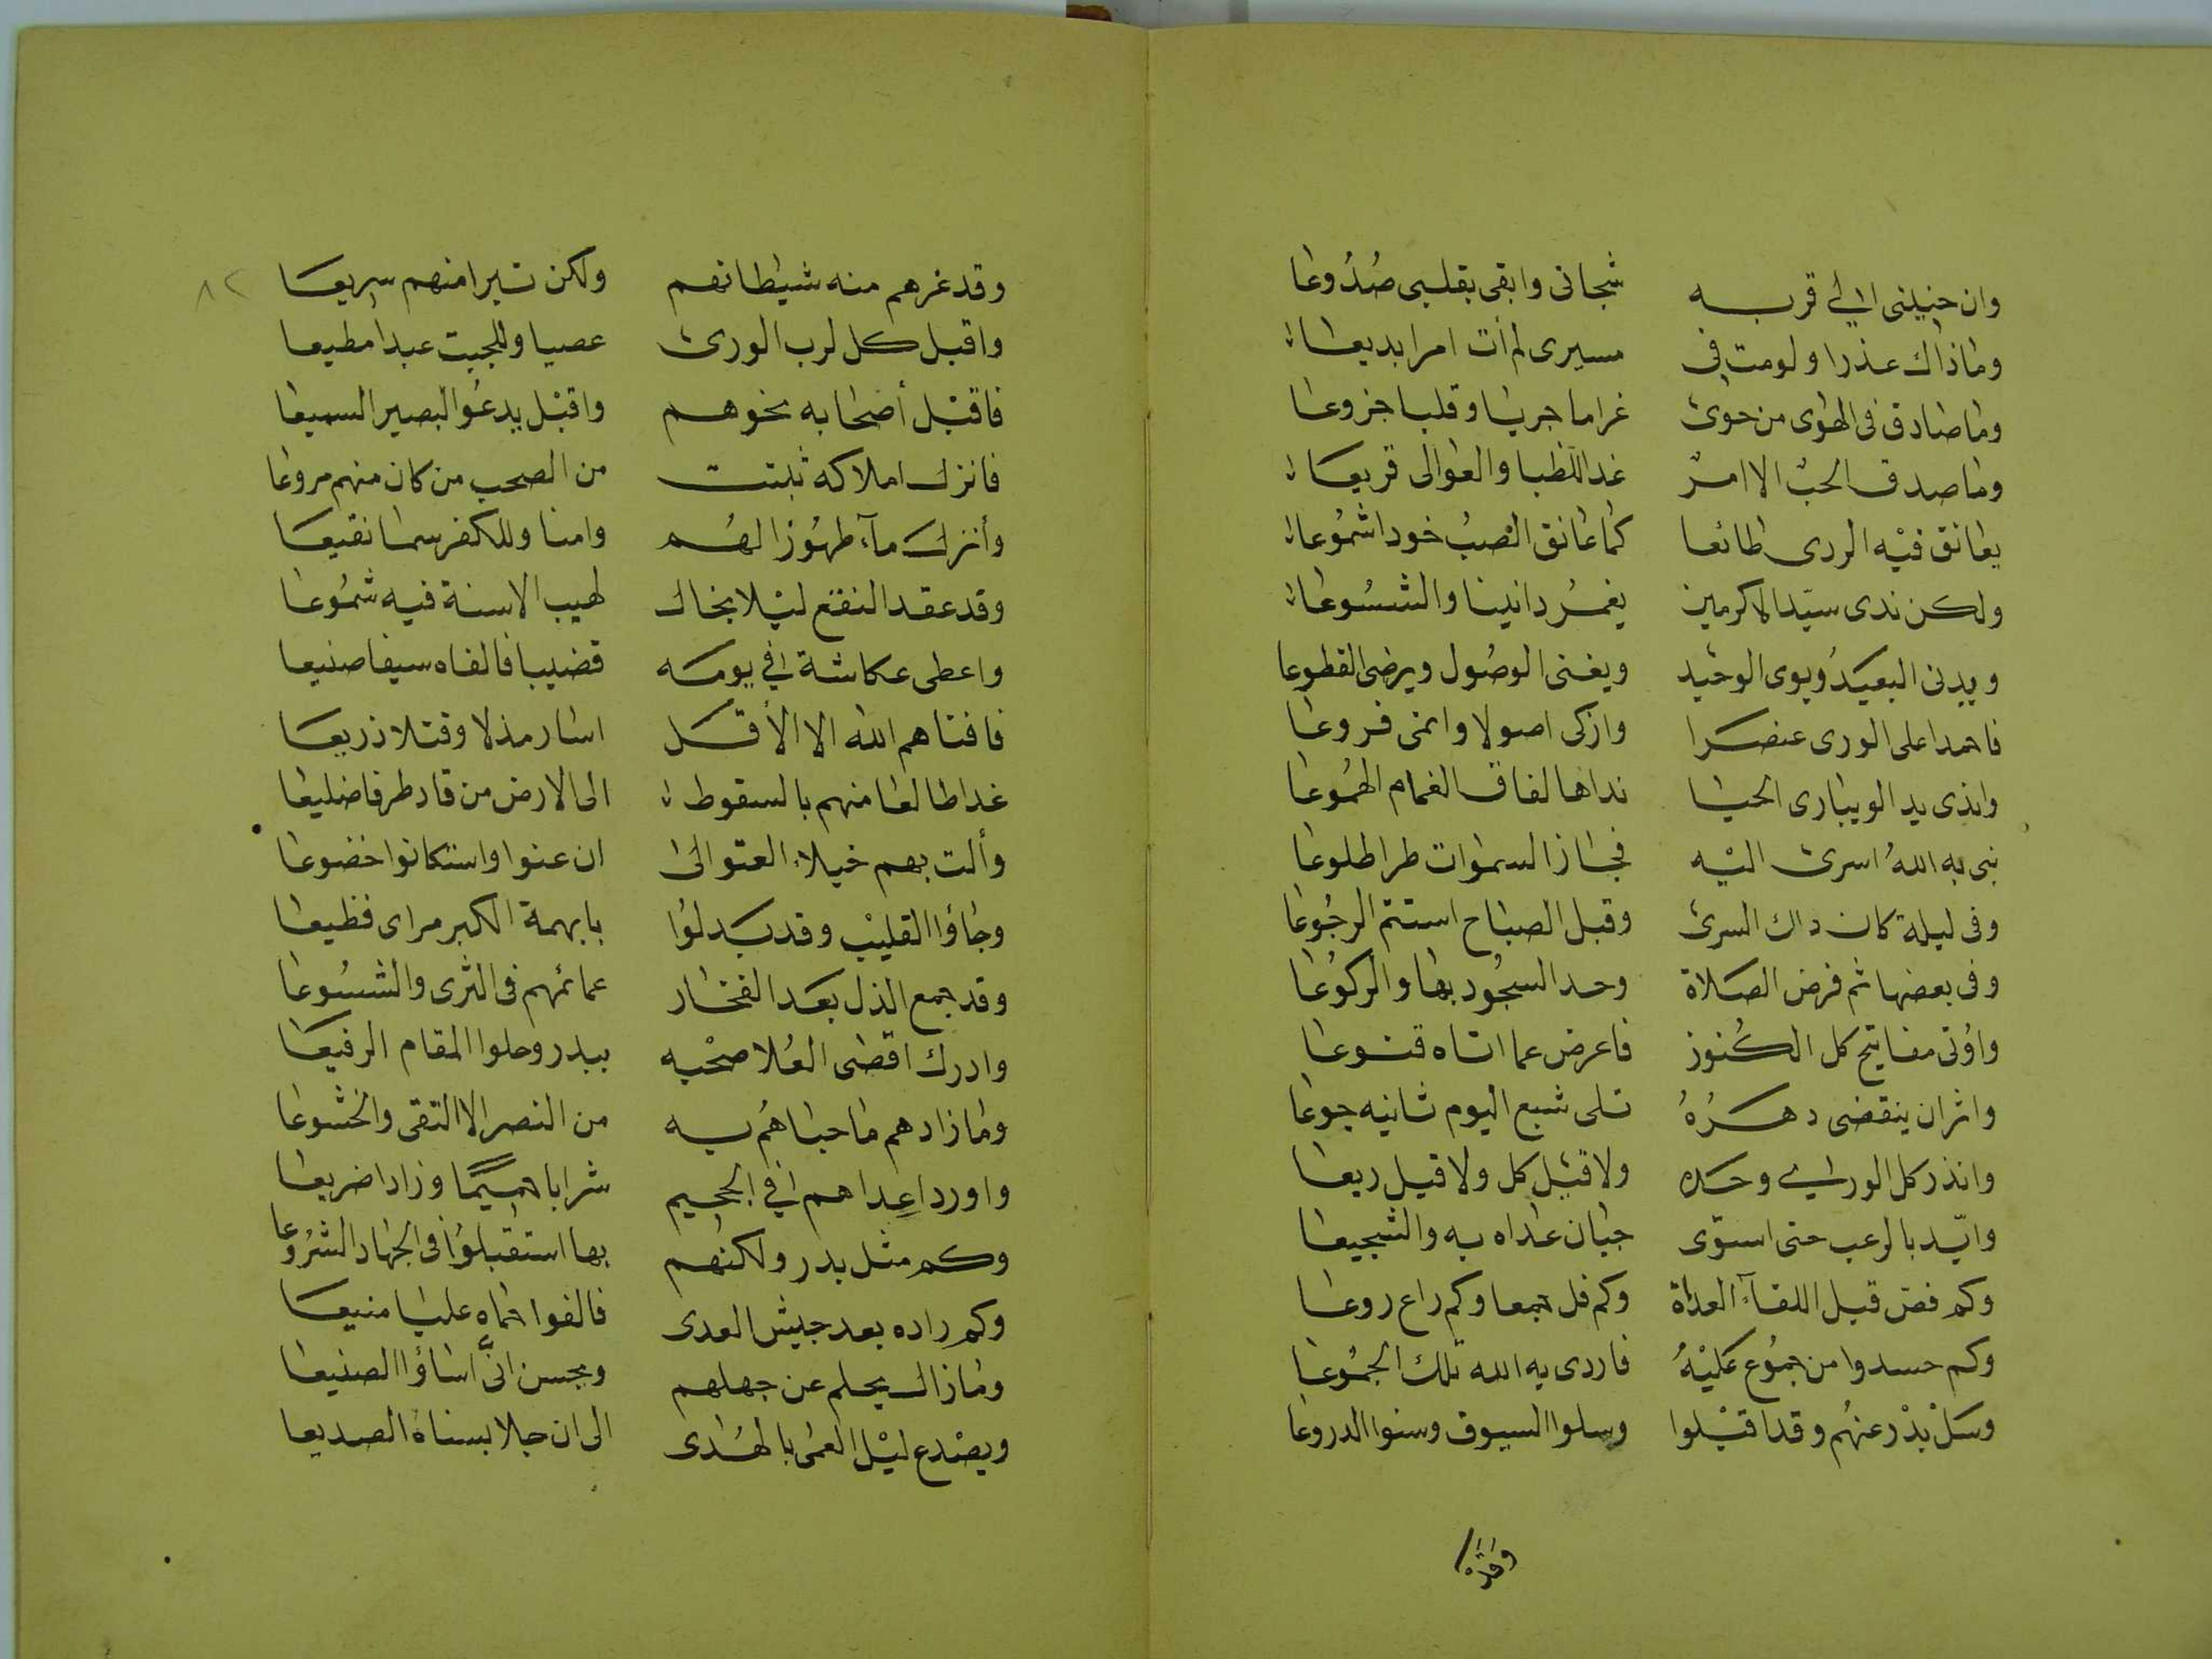 وان حنينى الى قربه شجانى وابقى بقلبى صُدُوعا
وماذاك عذرا ولومت فى مسيرى لم أت امرا بديعا
وما صادق فى الهوى من حوى غراما جريا وقلبا جزوعا
وما صدق الحبّ الا امرؤ غدا للظبا والعوالى قريعا
يعانق فيه الردى طائعا كما عانق الصبُ خودا شمُوعا
ولكن ندى سيّد الاكرمين يغمرُ دانينا والشسُوعا
ويدنى البعيدُ ويوى الوحيد ويغنى الوصُول ويرضى القطوعا
فاحمد اعلى الورى عنصرا وازكى اصولا وانمى فروعا
واندى يد الويبارى الحيا نداها لفاق الغمام الهمُوعا
نبى به اللهُ اسرى اليه فجاز السموات طرا طلوعا
وفى ليلة كان داك السرى وقبل الصباح استتم الرجُوعا
وفى بعضها ثم فرض الصلاة وحد السجُود بها والركوُعا
واوُتى مفاتيح كل الكُنوز فاعرض عما اتاه قنوعا
واثر ان ينقضى دهرُهُ تلى شبع اليوم ثانيه جوعا
وانذر كل الورى وحده ولا قيل كل ولا قيل ريعا
وايّد بالرعب حتى استوى جبان عداه به والشجيعا
وكم فض قبل اللقآء العداة وكم فل جمعا وكم راع روعا
وكم حسدوا من جمُوع عليهُ فاردى به الله تلك الجمُوعا
وسَلْ بدْر عنهُم وقد اقبلوا وسلوا السيوف وسنوا الدروعا
وقد
٨٢
وقد غرهم منه شيطانهم ولكن تبرا منهم سريعا
واقبل كل لرب الورى عصيا وللجبت عبدا مطيعا
فاقبل أصحابه نحوهم واقبل يدعُو البصير السميعا
فانزل املاكه ثبتت من الصحب من كان منهم مروعا
وأنزل مآء طهُورًا لهُم وامنا وللكفر سما نقيعا
وقد عقد النقع ليلا بخال لهيب الاسنة فيه شمُوعا
واعطى عكاشة فى يومه قضيبا فالفاه سيفا صنيعا
فافناهم الله الا الأقل اسار مذلا وقتلا ذريعا
غدا طالعا منهم بالسقوط الى الارض من قاد طرفا ضليعا
وألت بهم خيلاء العتو الى ان عنوا واستكانوا خضوعا
وجاؤا القليب وقد بدلوُا بابهة الكبر مراى فظيعا
وقد جمع الذل بعد الفخار عمائمهم فى الثرى والشسُوعا
وادرك اقصى العُلا صحْبه ببدر وحلوا المقام الرفيعا
وما زادهم ما حباهُم به من النصر الا التقى والخشوعا
واورد اعِداهم فى الجحيم شرابا حميمًا وزادا ضريعا
وكم مثل بدر ولكنهم بها استقبلوُا فى الجهاد الشرُوعا
وكم راده بعد جيش العدى فالفوا حماه عليا منيعا
وما زال يحلم عن جهلهم ويحسن انَّى اساؤا الصنيعا
ويصْدع ليْل العمى بالهُدى الى ان جلا بسناه الصديعا